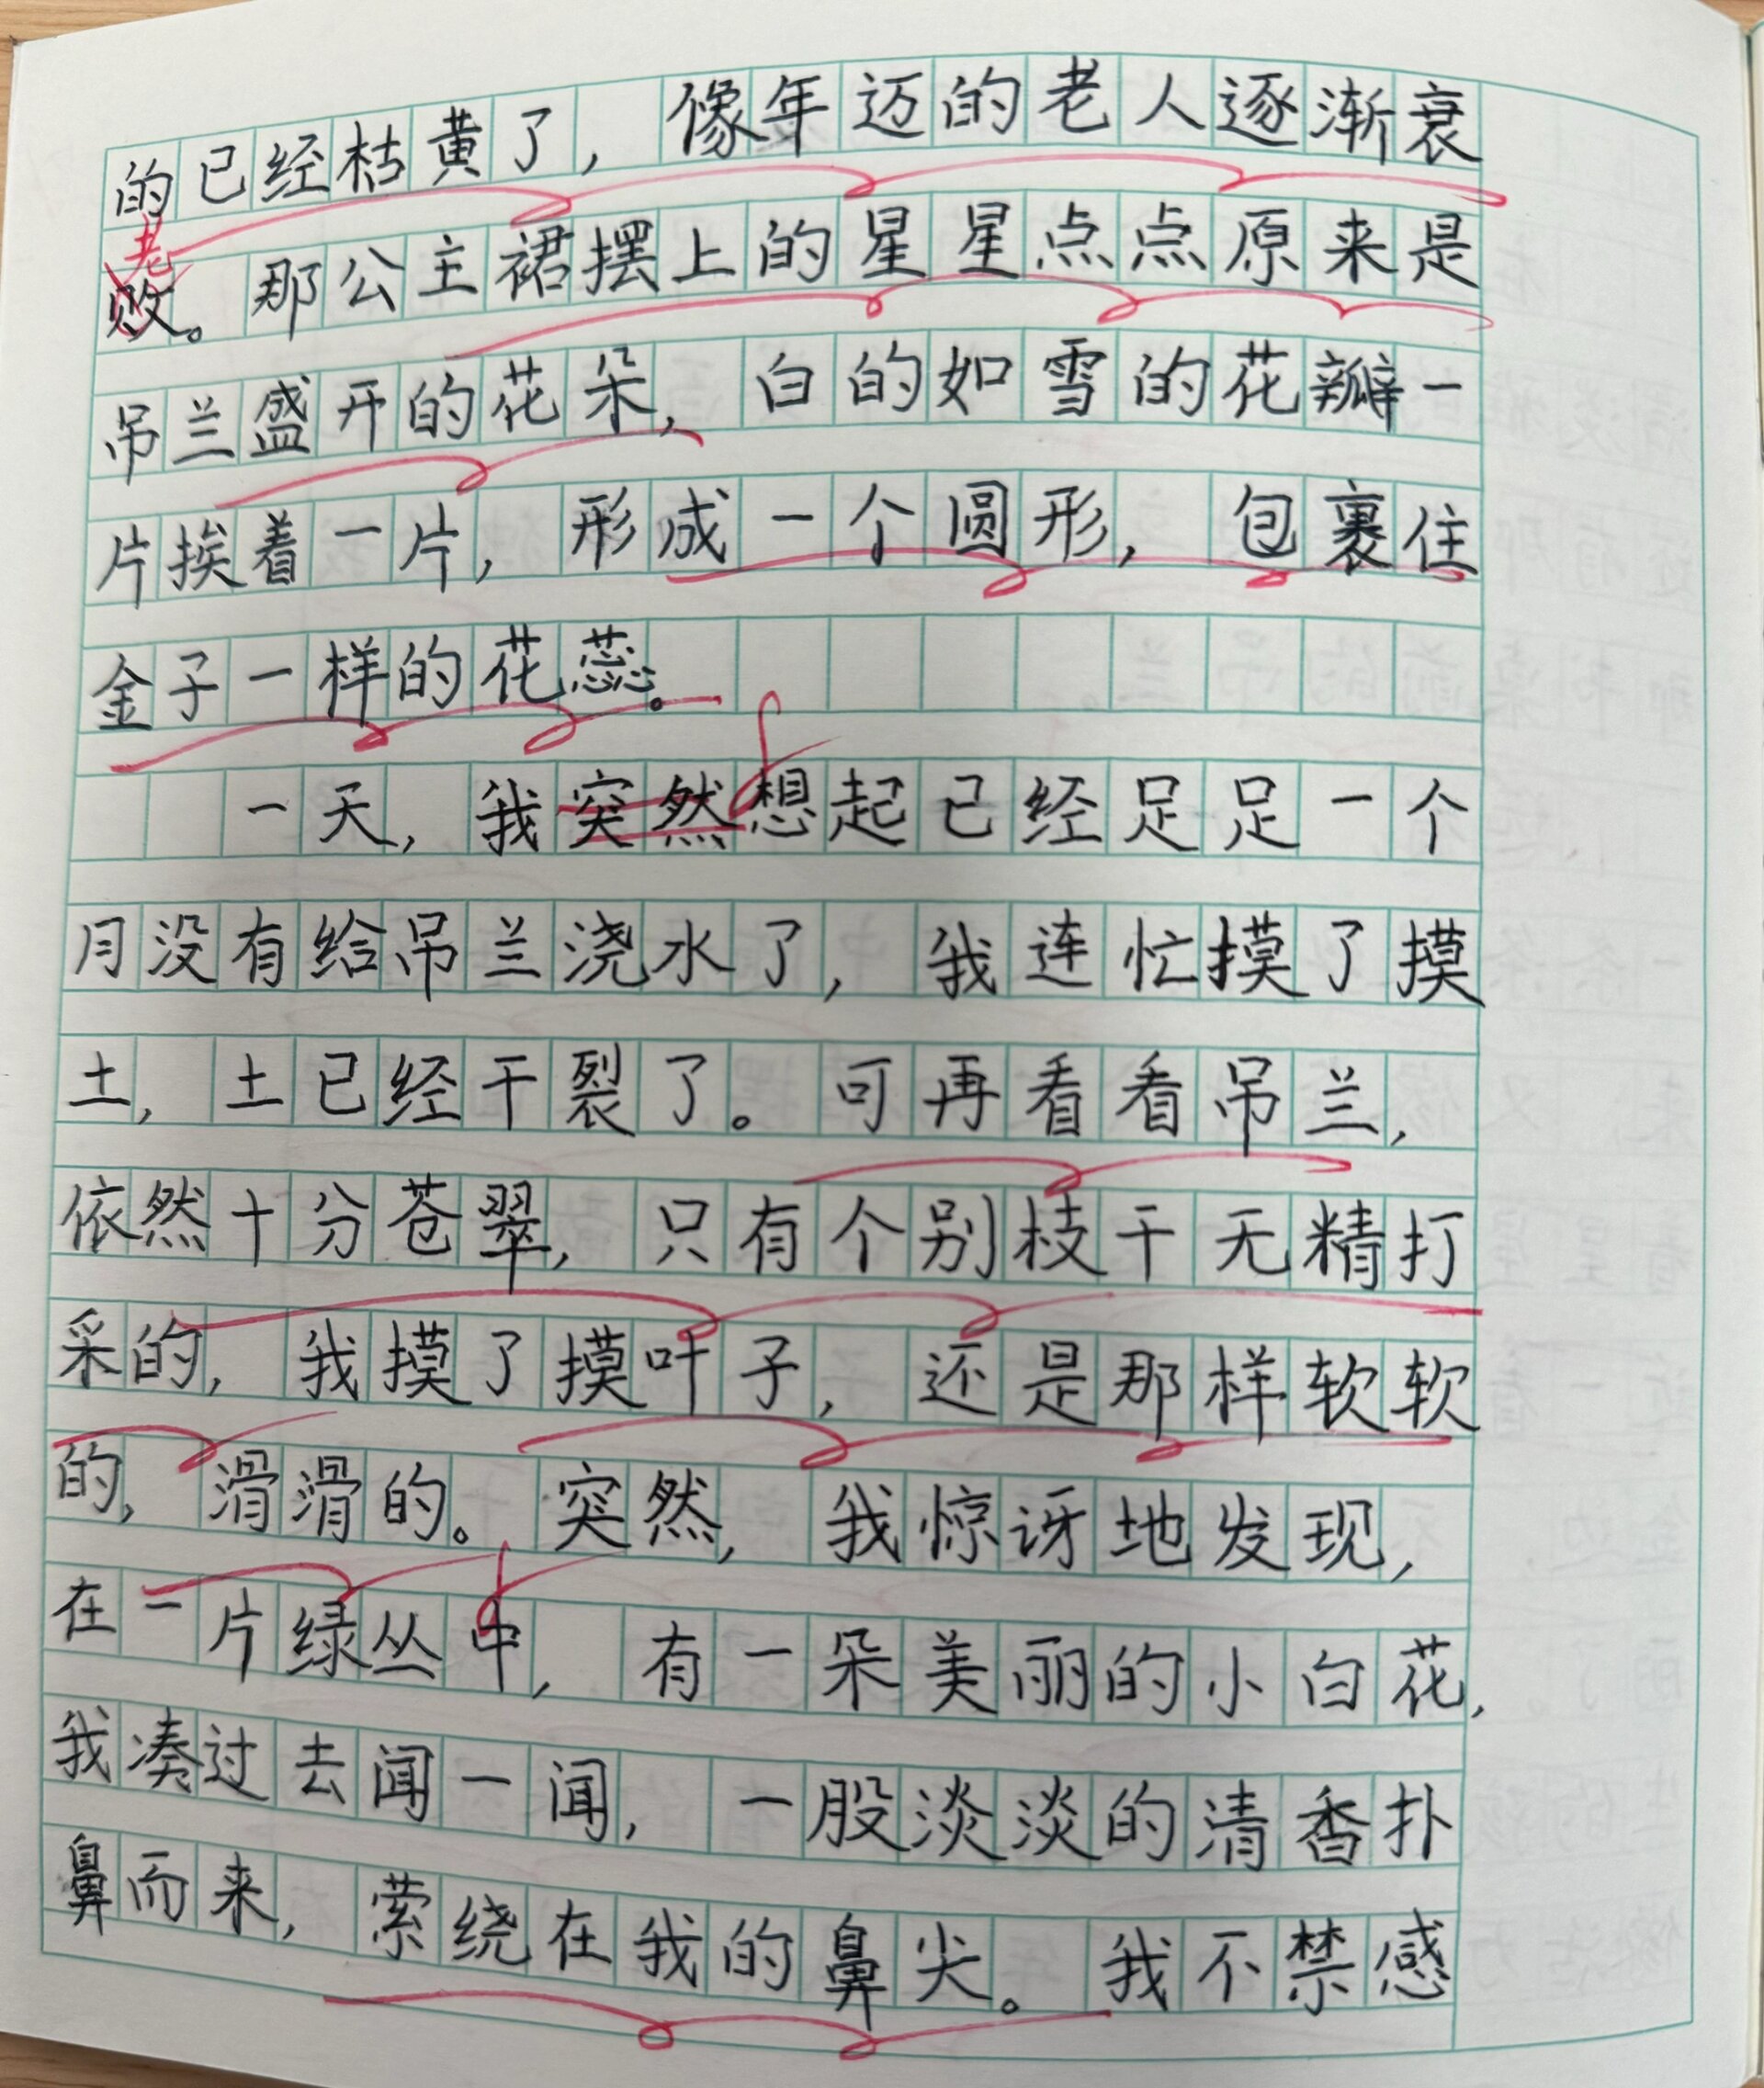 的已经枯黄了，像年迈的老人逐渐衰
老
败。那公主裙摆上的星星点点原来是
吊兰盛开的花朵，白的如雪的花瓣一
片挨着一片，形成一个圆形，包裹住
金子一样的花蕊。
一天，我突然想起已经足足一个
月没有给吊兰浇水了，我连忙摸了摸
土，土已经干裂了。可再看看吊兰，
依然十分苍翠，只有个别枝干无精打
采的，我摸了摸叶子，还是那样软软
的，滑滑的。突然，我惊讶地发现，
在一片绿丛中，有一朵美丽的小白花，
我凑过去闻一闻，一股淡淡的清香扑
鼻而来，萦绕在我的鼻尖。我不禁感